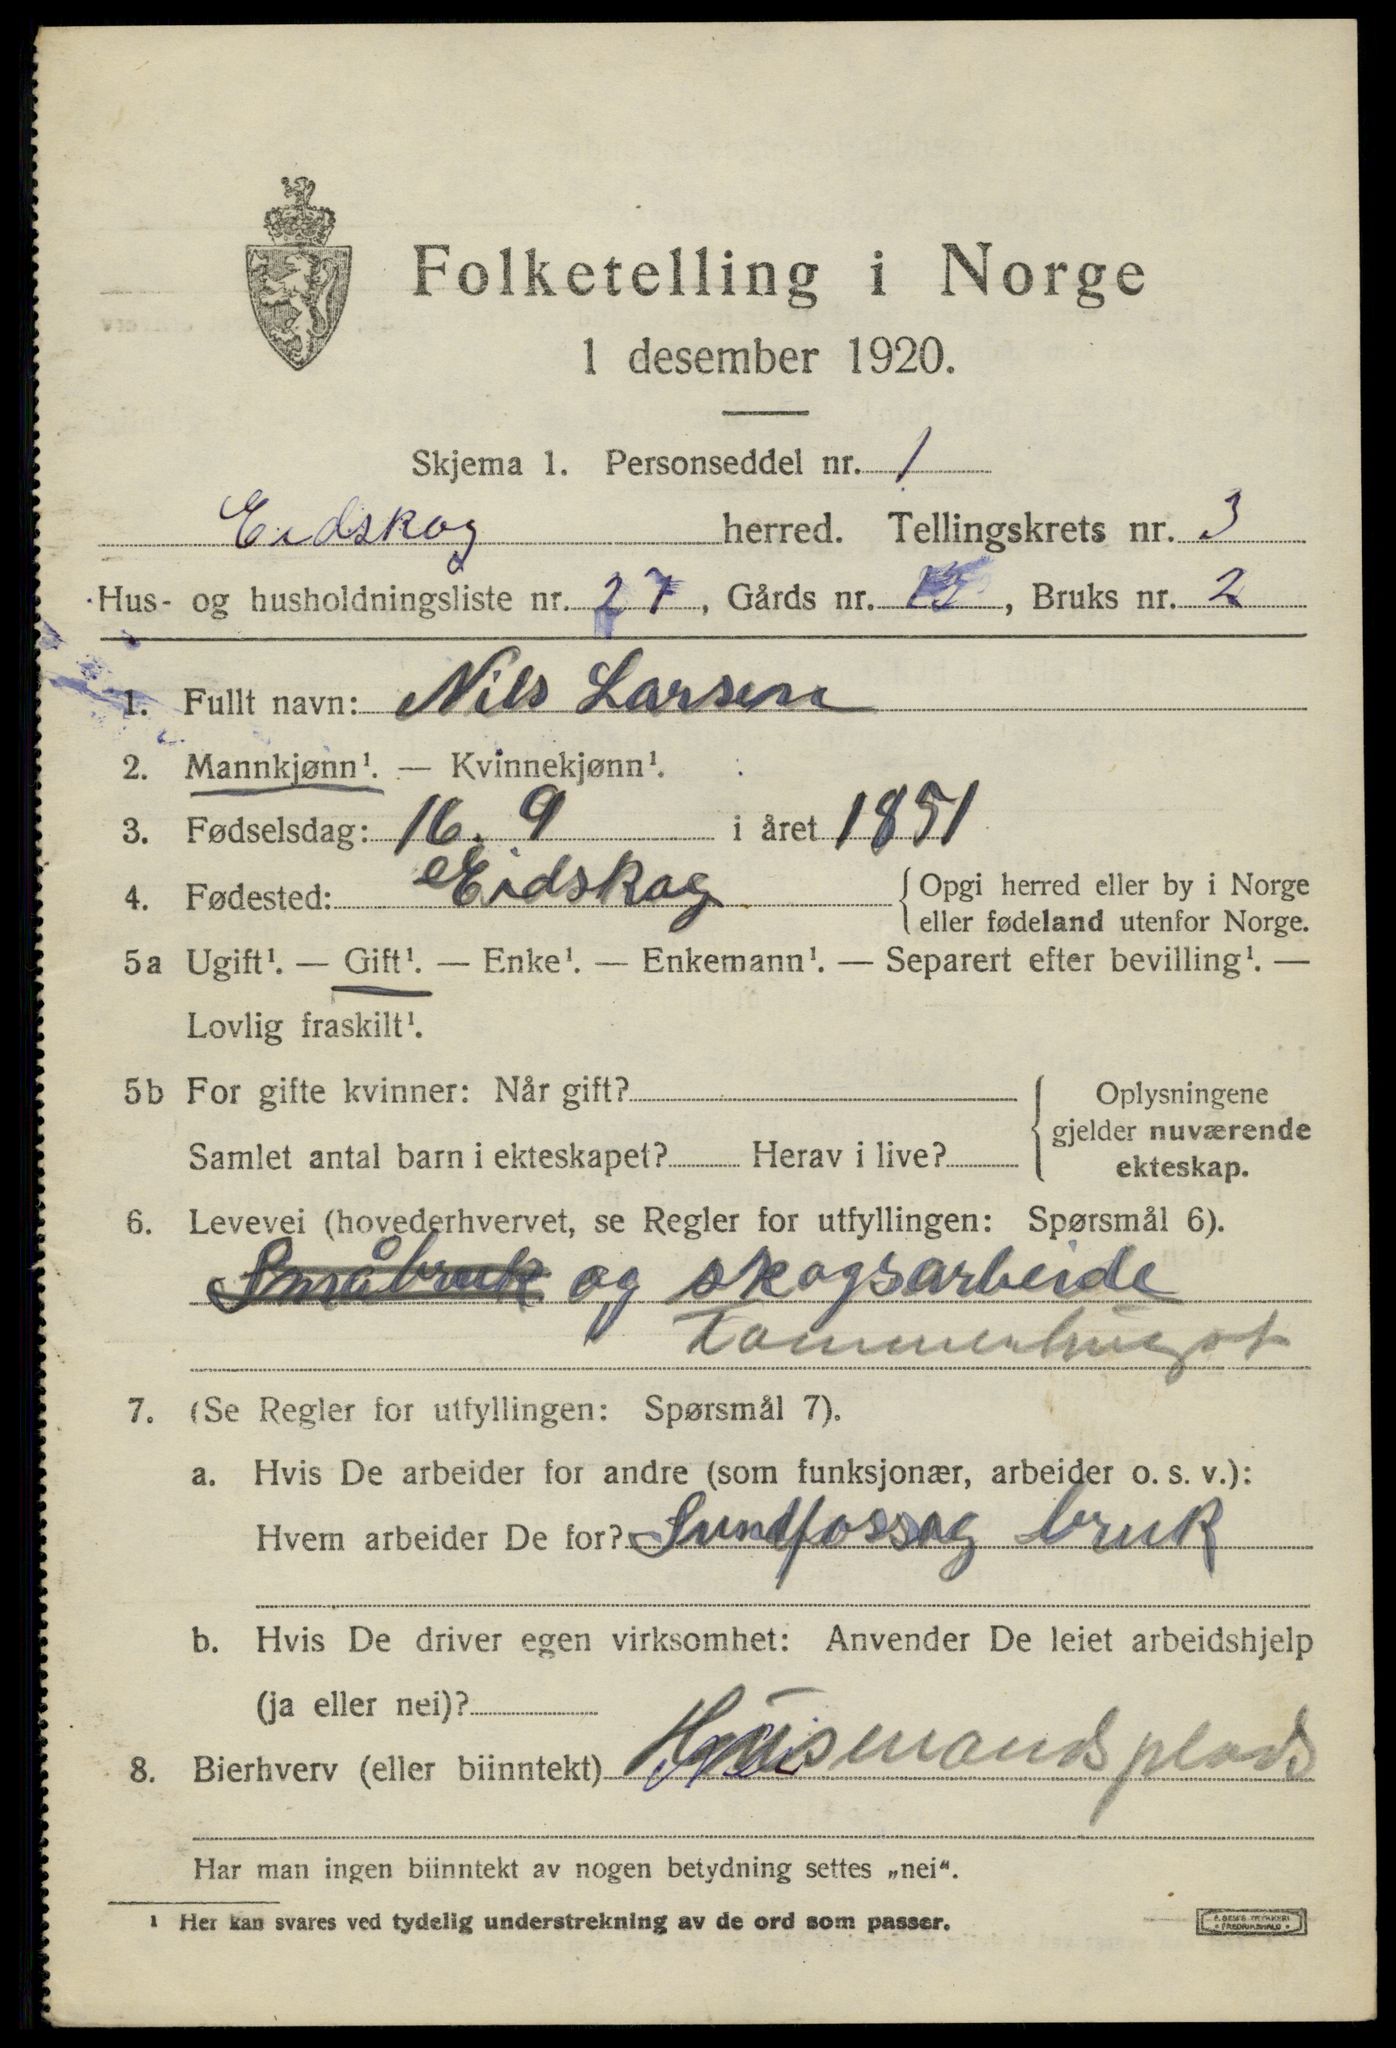 Folketelling i Norge
1 desember 1920.
Skjema 1. Personseddel nr. 1
Eidskog herred. Tellingskrets nr. 3
Hus- og husholdningsliste nr. 27, Gårds nr. 12, Bruks nr. 2
1. Fullt navn: Nils Larsen
2. Mannkjønn¹. — Kvinnekjønn¹.
3. Fødselsdag: 16. 9 i året 1851
4. Fødested: Eidskog {Opgi herred eller by i Norge
eller fødeland utenfor Norge.
5a Ugift¹. — Gift¹. — Enke¹. — Enkemann¹. — Separert efter bevilling¹. —
Lovlig fraskilt¹.
5b For gifte kvinner: Når gift? { Oplysningene
gjelder nuværende
Samlet antal barn i ekteskapet? Herav i live? ekteskap.
6. Levevei (hovederhvervet, se Regler for utfyllingen: Spørsmål 6).
Småbruk og skogsarbeide
Tømmerhugst
7. (Se Regler for utfyllingen: Spørsmål 7).
a. Hvis De arbeider for andre (som funksjonær, arbeider o. s. v.):
Hvem arbeider De for? Sundfossag bruk
b. Hvis De driver egen virksomhet: Anvender De leiet arbeidshjelp
(ja eller nei)?
8. Bierhverv (eller biinntekt) Husmandsplads
Har man ingen biinntekt av nogen betydning settes „nei“.
¹ Her kan svares ved tydelig understrekning av de ord som passer.